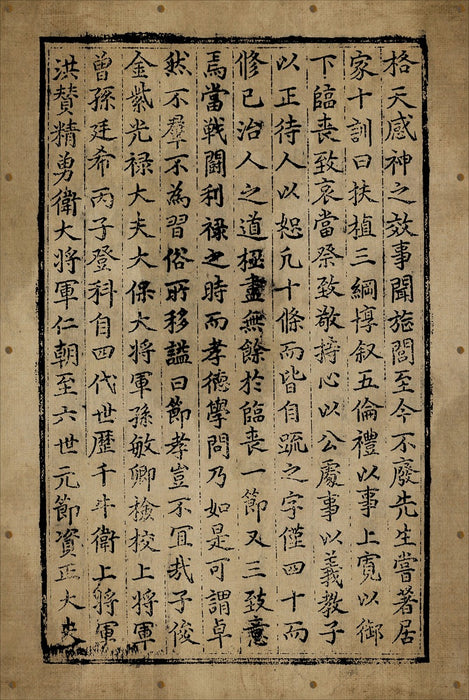 格天感神之效事聞旌閭至今不廢先生嘗著居
家十訓曰扶植三綱惇叙五倫禮以事上寬以御
下臨喪致哀當祭致敬持心以公處事以義教子
以正待人以恕凡十條而皆自䟽之字僅四十而
修己治人之道極盡無餘於臨喪一節又三致意
焉當戰鬪利祿之時而孝德學問乃如是可謂卓
然不羣不為習俗所移謚曰節孝豈不宜哉子俊
金紫光祿大夫大保大將軍孫敏卿檢校上將軍
曾孫廷希丙子登科自四代世歷千牛衛上將軍
洪賛精勇衛大將軍仁朝至六世元節資正大史